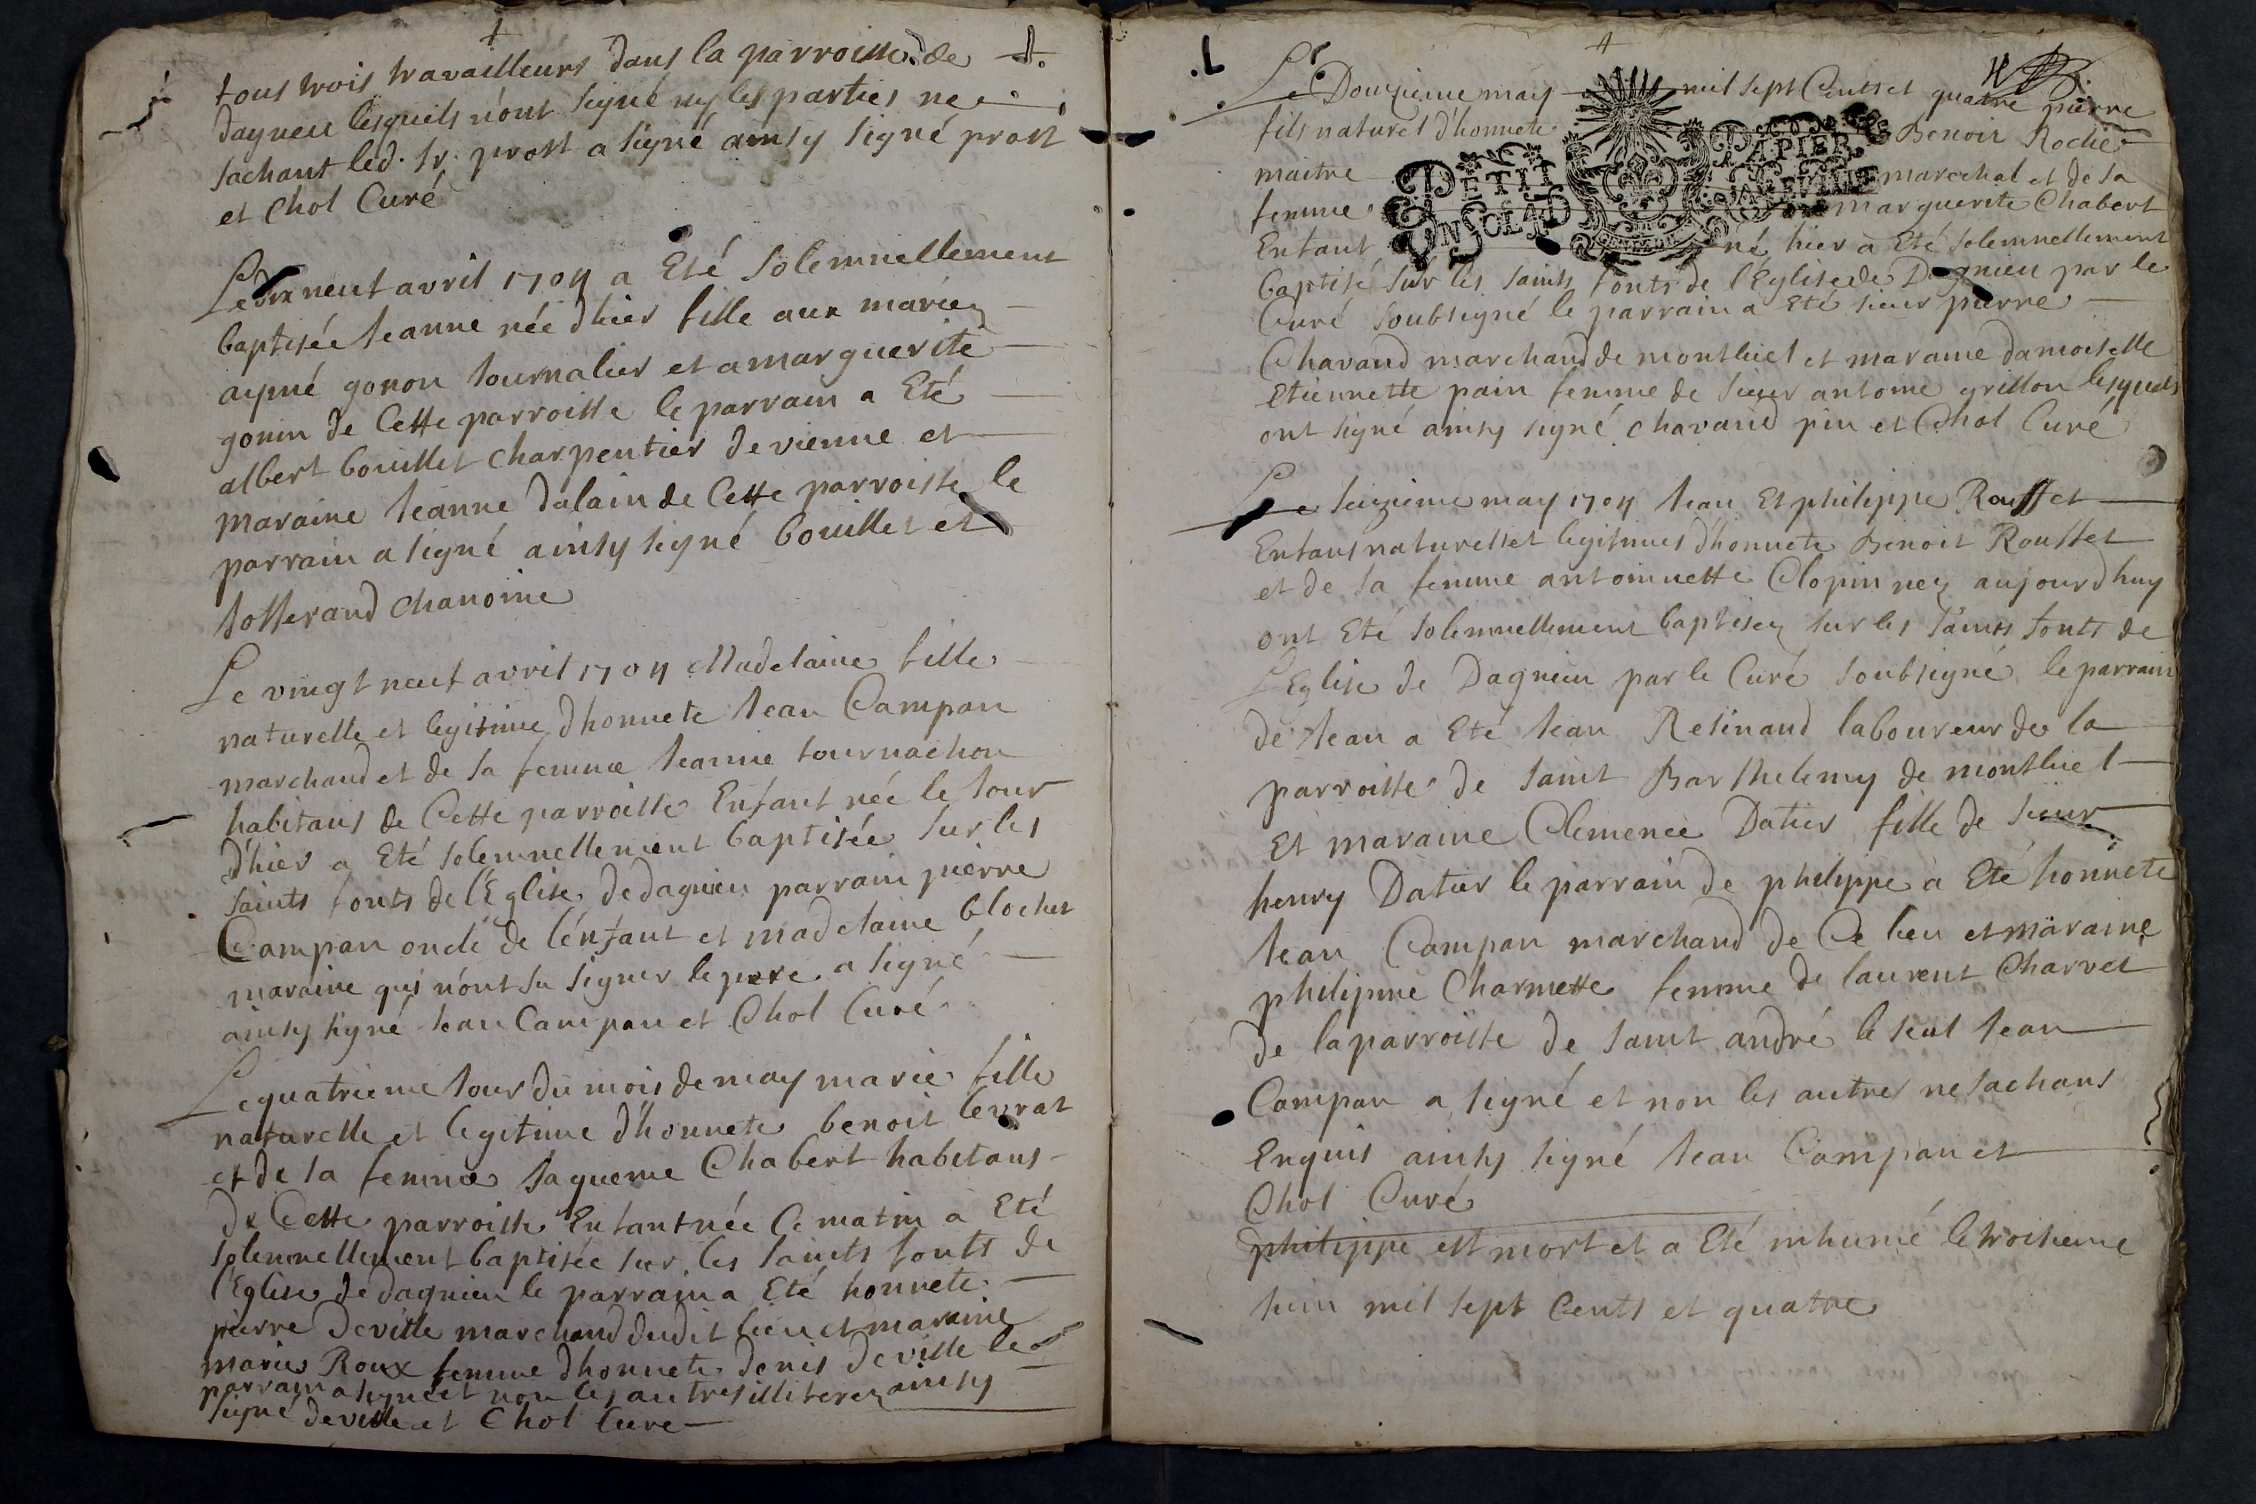 tous trois travailleurs dans la parroisse de
dagneu lesquels n'ont signé ny les parties ne
sachant led. sr. prost a signé ainsy signé prost
et Chol Curé
Le dix neuf avril 1704 a Eté solemnellement
baptisée Jeanne née d'hier fille aux mariez
aymé gonon Journalier et a marguerite
gonin de Cette parroisse le parrain a Eté
albert bouillet charpentier de vienne et
maraine Jeanne dalain de Cette parroisse le
parrain a signé ainsy signé bouillet et
Josserand Chanoine
Le vingt neuf avril 1704 Madelaine fille
naturelle et legitime d'honnete Jean Campan
marchand et de sa femme Jeanne tournachon
habitans de Cette parroisse Enfant née le Jour
d'hier a Eté solemnellement baptisée sur les
saints fonts de l'Eglise de dagnieu parrain pierre
Campan oncle de l'énfant et madelaine blochet
maraine qui n'ont su signer le pere a signé
ainsy signé Jean Campan et Chol Curé
Le quatrieme Jour du mois de may marie fille
naturelle et legitime d'honnete benoit levrat
et de sa femme Jaqueme Chabert habitans
de Cette parroisse Enfant née Ce matin a Eté
solemnellement baptisée sur les saints fonts de
l'Eglise de dagnieu le parrain a Eté honnete
pierre deville marchand dudit lieu et maraine
marie Roux femme d'honnete denis deville le
parrain a signé et non les autres illiterez ainsy
signé deville et Chol Curé
Le Douzieme may mil sept Cents et quatre pierre
fils naturel d'honnete Benoit Rodie
maitre marechal et de sa
femme marguerite Chabert
Enfant né hier a Eté solemnellement
baptisé sur les saints fonts de l'Eglise de Dagnieu par le
Curé soubsigné le parrain a Eté sieur pierre
Chavand marchand de montluel et maraine damoiselle
Etiennette pain femme de sieur antoine grillon lesquels
ont signé ainsy signé chavand pin et Chol Curé
PETIT PAPIER
UN SOL
Le seizieme may 1704 Jean Et philippe Rousset
Enfans naturels et legitimes d'honnete Benoit Rousset
et de sa femme antoinnette Clopin nez aujourdhuy
ont Eté solemnellement baptisez sur les saints fonts de
L'Eglise de Dagnieu par le Curé soubsigné le parrain
de Jean a Eté Jean Resinand laboureur de la
parroisse de saint Barthelemy de montluel
Et maraine Clemence Datier fille de sieur
henry Datier le parrain de philippe a Eté honnete
Jean Campan marchand de Ce lieu et maraine
philippine Charmette femme de laurent Charvet
de la parroisse de saint andré le seul Jean
Campan a signé et non les autres ne sachans
Enquis ainsy signé Jean Campan et
Chol Curé
philippe est mort et a Eté inhumé le troisieme
Juin mil sept Cents et quatre